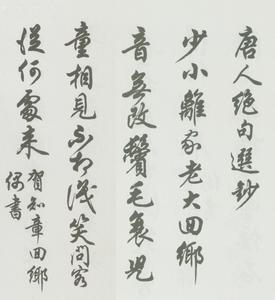 唐人絕句選鈔
少小離家老大回鄉
音無改鬢毛衰兒
童相見不相識笑問客
從何處來
賀知章回鄉
偶書